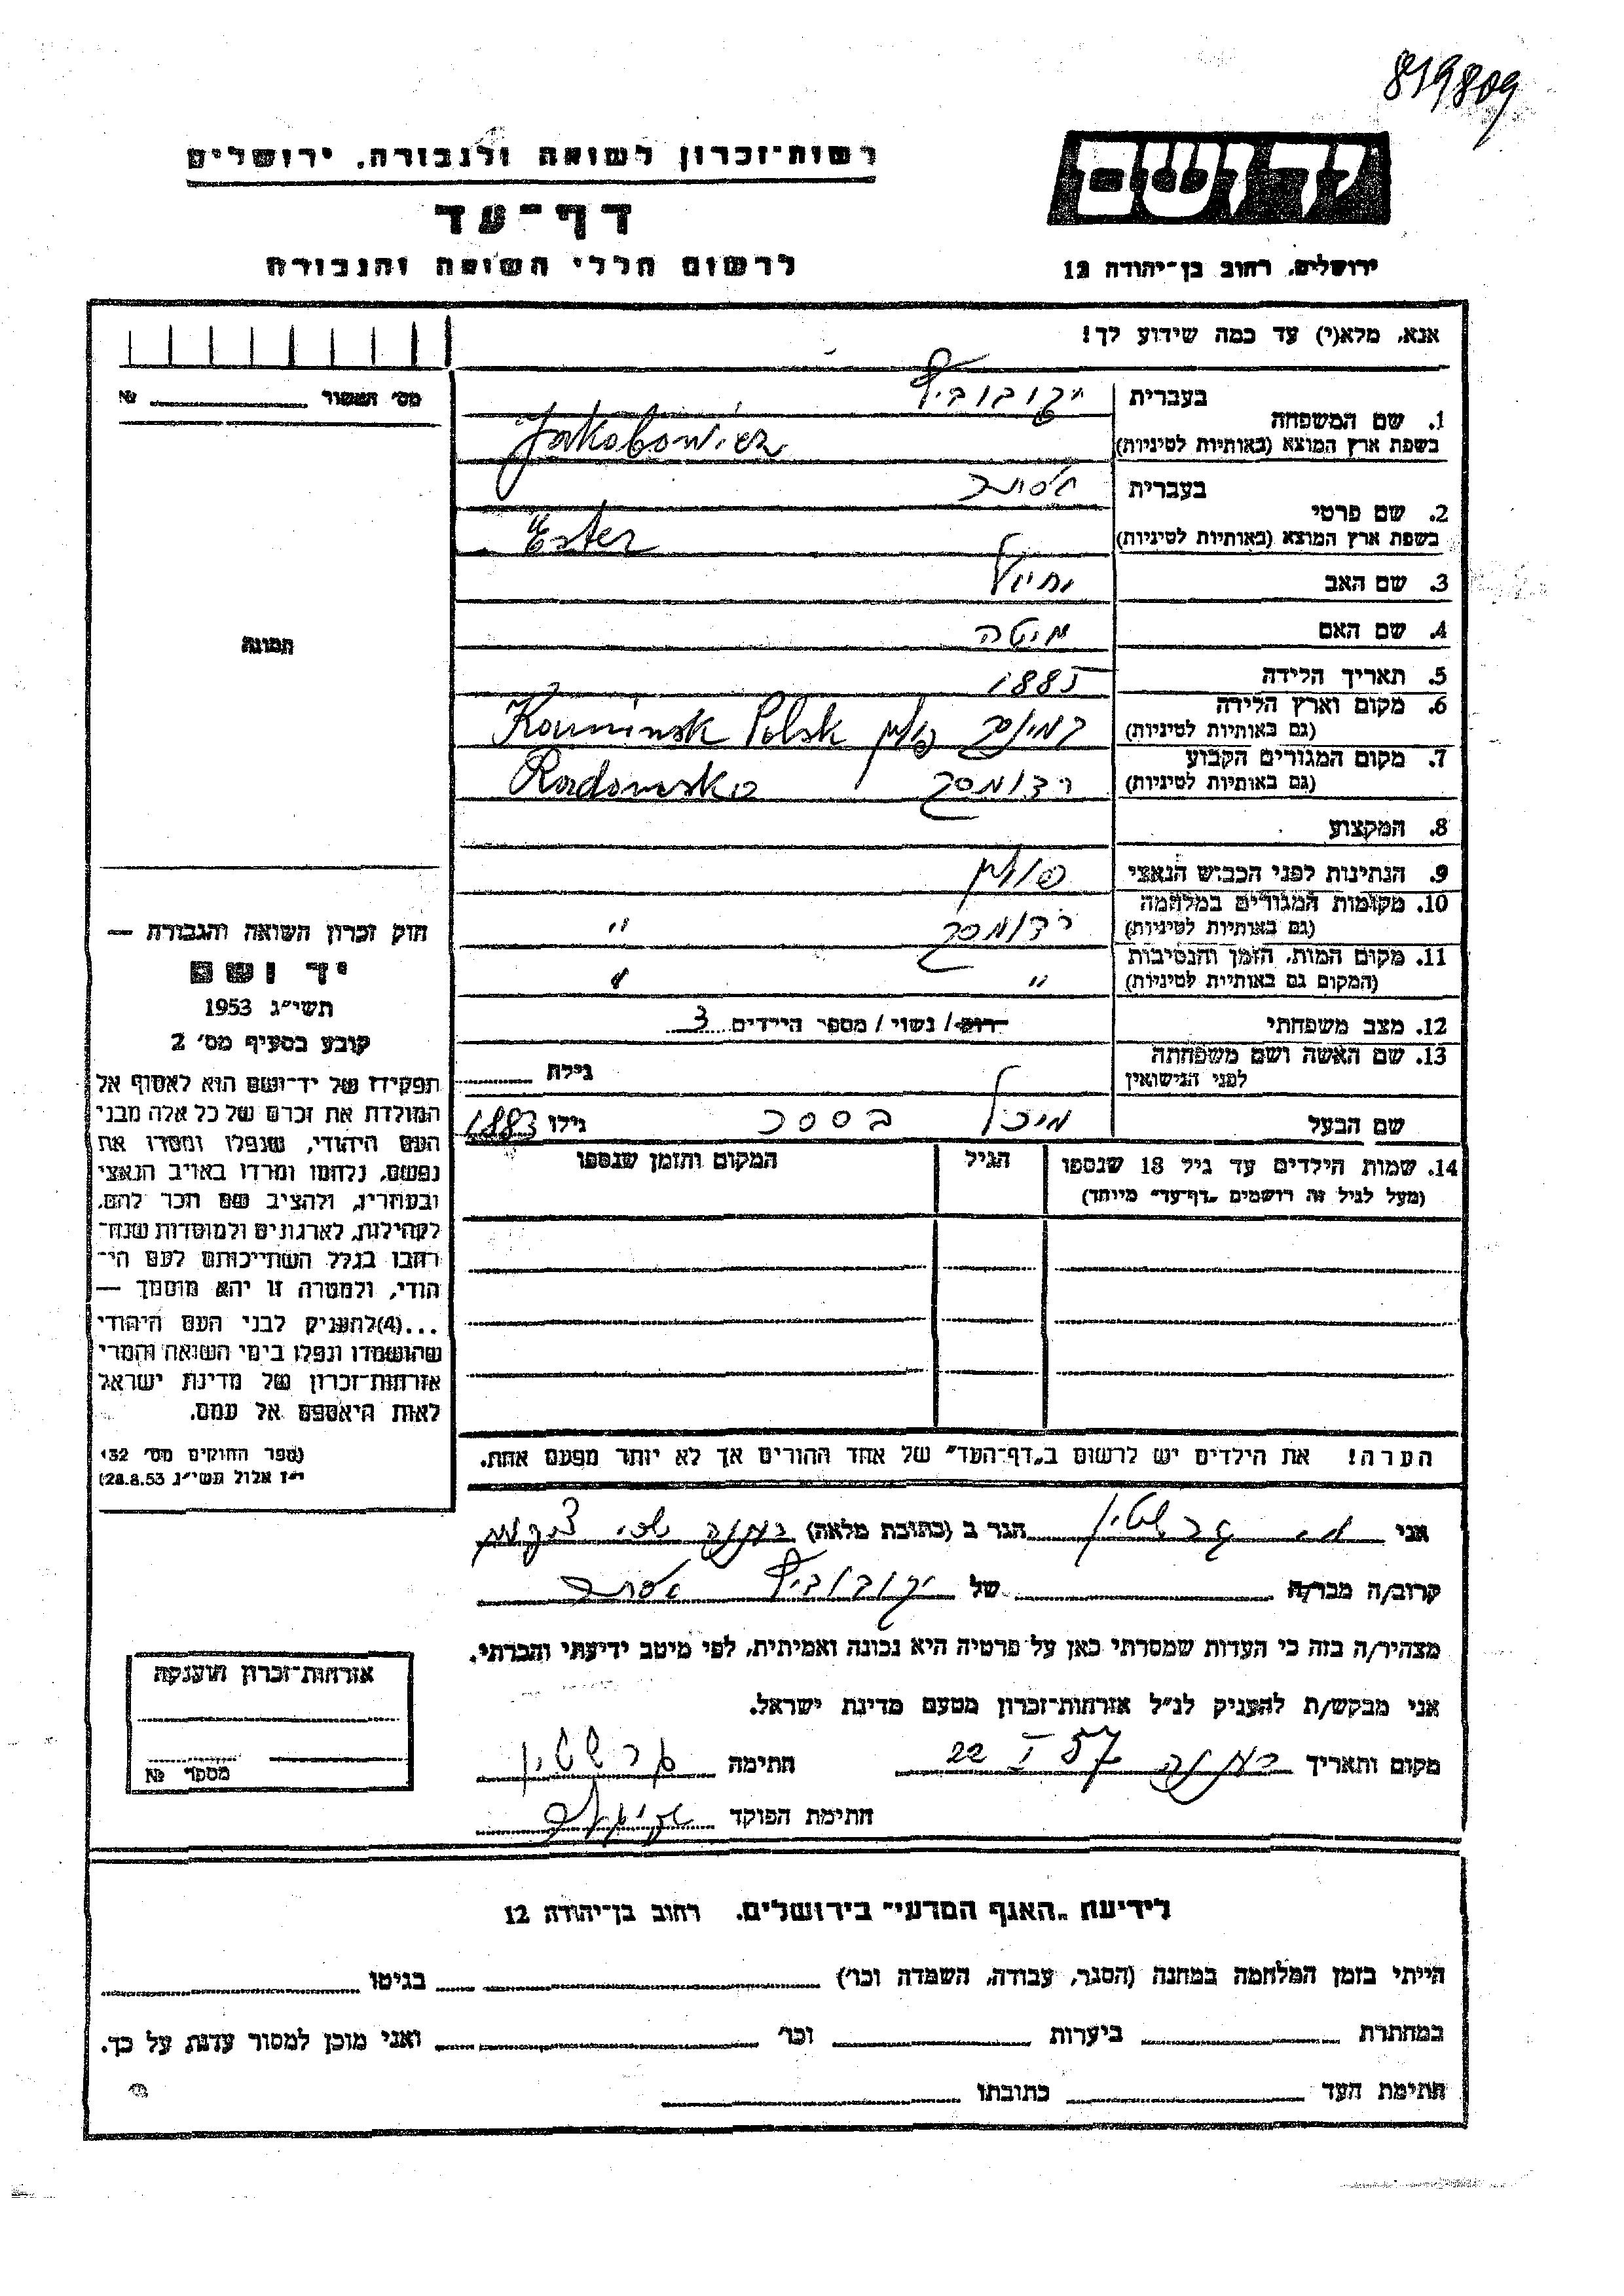 819809
רשות־זכרון לשואה ולגבורה. ירושלים
דף־עד
לרשום חללי השואה והגבורה
יד ושם
ירושלים, רחוב בן־יהודה 12
אנא, מלא(י) עד כמה שידוע לך!
מס' השאור № 
תמונה
1. שם המשפחה
בעברית יקובוביץ
בשפת ארץ המוצא (באותיות לטיניות) Jakobowicz
2. שם פרטי
בעברית אסתר
בשפת ארץ המוצא (באותיות לטיניות) Ester
3. שם האב
4. שם האם
5. תאריך הלידה 1885
6. מקום וארץ הלידה
(גם באותיות לטיניות) פולין Polsk
7. מקום המגורים הקבוע
(גם באותיות לטיניות) רדומסק Radomsko
8. המקצוע
9. הנתינות לפני הכבוש הנאצי פולין
10. מקומות המגורים במלחמה
(גם באותיות לטיניות) רדומסק "
11. מקום המות, הזמן והנסיבות
(המקום גם באותיות לטיניות) " "
12. מצב משפחתי רוק / נשוי / מספר הילדים 3
13. שם האשה ושם משפחתה
לפני הנישואין גילה
שם הבעל מיכל גילו 1883
14. שמות הילדים עד גיל 18 שנספו הגיל המקום והזמן שנספו
(מעל לגיל זה רושמים „דף־עד" מיוחד)
הערה! את הילדים יש לרשום ב„דף־העד" של אחד ההורים אך לא יותר מפעם אחת.
חוק זכרון השואה והגבורה —
יד ושם
תשי"ג 1953
קובע בסעיף מס' 2
תפקידו של יד־ושם הוא לאסוף אל
המולדת את זכרם של כל אלה מבני
העם היהודי, שנפלו ומסרו את
נפשם, נלחמו ומרדו באויב הנאצי
ובעוזריו, ולהציב שם וזכר להם,
לקהילות, לארגונים ולמוסדות שנח־
רבו בגלל השתייכותם לעם הי־
הודי, ולמטרה זו יהא מוסמך —
...(4) להעניק לבני העם היהודי
שהושמדו ונפלו בימי השואה והמרי
אזרחות־זכרון של מדינת ישראל
לאות היאספם אל עמם.
(ספר החוקים מס' 132
י"ז אלול תשי"ג 28.8.53)
אני הגר ב (כתובת מלאה)
קרוב/ה מכר/ה של יקובוביץ אסתר
מצהיר/ה בזה כי העדות שמסרתי כאן על פרטיה היא נכונה ואמיתית, לפי מיטב ידיעתי והכרתי.
אני מבקש/ת להעניק לנ"ל אזרחות־זכרון מטעם מדינת ישראל.
מקום ותאריך 22 I 57 חתימה
חתימת הפוקד
אזרחות־זכרון הוענקה
מספר №
לידיעת „האגף המדעי" בירושלים. רחוב בן־יהודה 12
הייתי בזמן המלחמה במחנה (הסגר, עבודה, השמדה וכו') בגיטו
במחתרת ביערות וכו' ואני מוכן למסור עדות על כך.
חתימת העד כתובתו